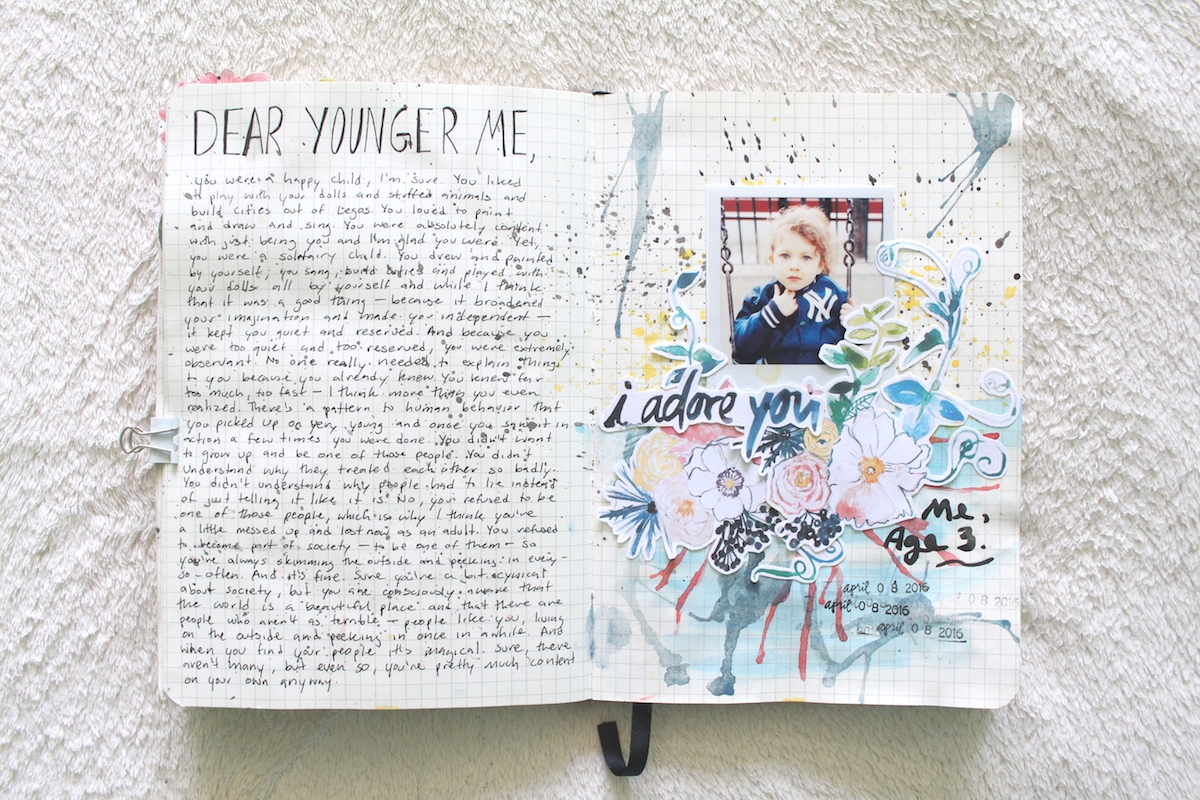 DEAR YOUNGER ME,
You were a happy child, I'm sure. You liked
to play with your dolls and stuffed animals and
build cities out of Legos. You loved to paint
and draw and sing. You were absolutely content
with just being you and I'm glad you were. Yet,
you were a solitary child. You drew and painted
by yourself; you sang, build cities and played with
your dolls all by yourself and while I think
that it was a good thing – because it broadened
your imagination and made you independent –
it kept you quiet and reserved. And because you
were too quiet and too reserved, you were extremely
observant. No one really needed to explain things
to you because you already knew. You knew far
too much, too fast – I think more than you even
realized. There's a pattern to human behavior that
you picked up on very young and once you saw it in
action a few times you were done. You didn't want
to grow up and be one of those people. You didn't
understand why they treated each other so badly.
You didn't understand why people had to lie instead
of just telling it like it is. No, you refused to be
one of those people, which is why I think you're
a little messed up and lost now as an adult. You refused
to become part of society – to be one of them – so
you're always skimming the outside and peeking in every –
so – often. And it's fine. Sure you're a bit cynical
about society, but you are consciously aware that
the world is a beautiful place and that there are
people who aren't as terrible – people like you, living
on the outside and peeking in once in awhile. And
when you find your people it's magical. Sure, there
aren't many, but even so, you're pretty much content
on your own anyway.
NY
i adore you
Me,
Age 3.
april 0 8 2016
0 8 2016
april 0 8 2016
april 0 8 2016